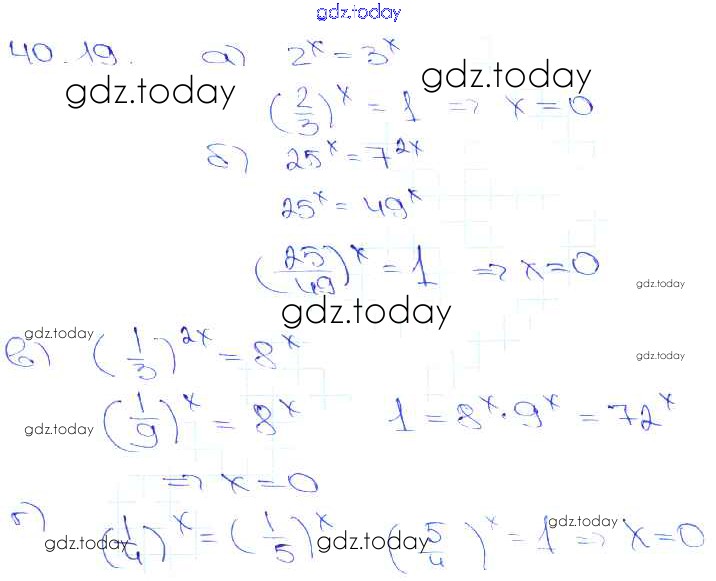 gdz.today
40.19. а) 2^x = 3^x
gdz.today gdz.today
(2/3)^x = 1 => x = 0
б) 25^x = 7^{2x}
25^x = 49^x
(25/49)^x = 1 => x = 0
gdz.today
gdz.today
gdz.today
в) (1/3)^{2x} = 8^x
gdz.today
(1/9)^x = 8^x 1 = 8^x · 9^x = 72^x
gdz.today
=> x = 0
г) (1/4)^x = (1/5)^x (5/4)^x = 1 => x = 0
gdz.today gdz.today gdz.today